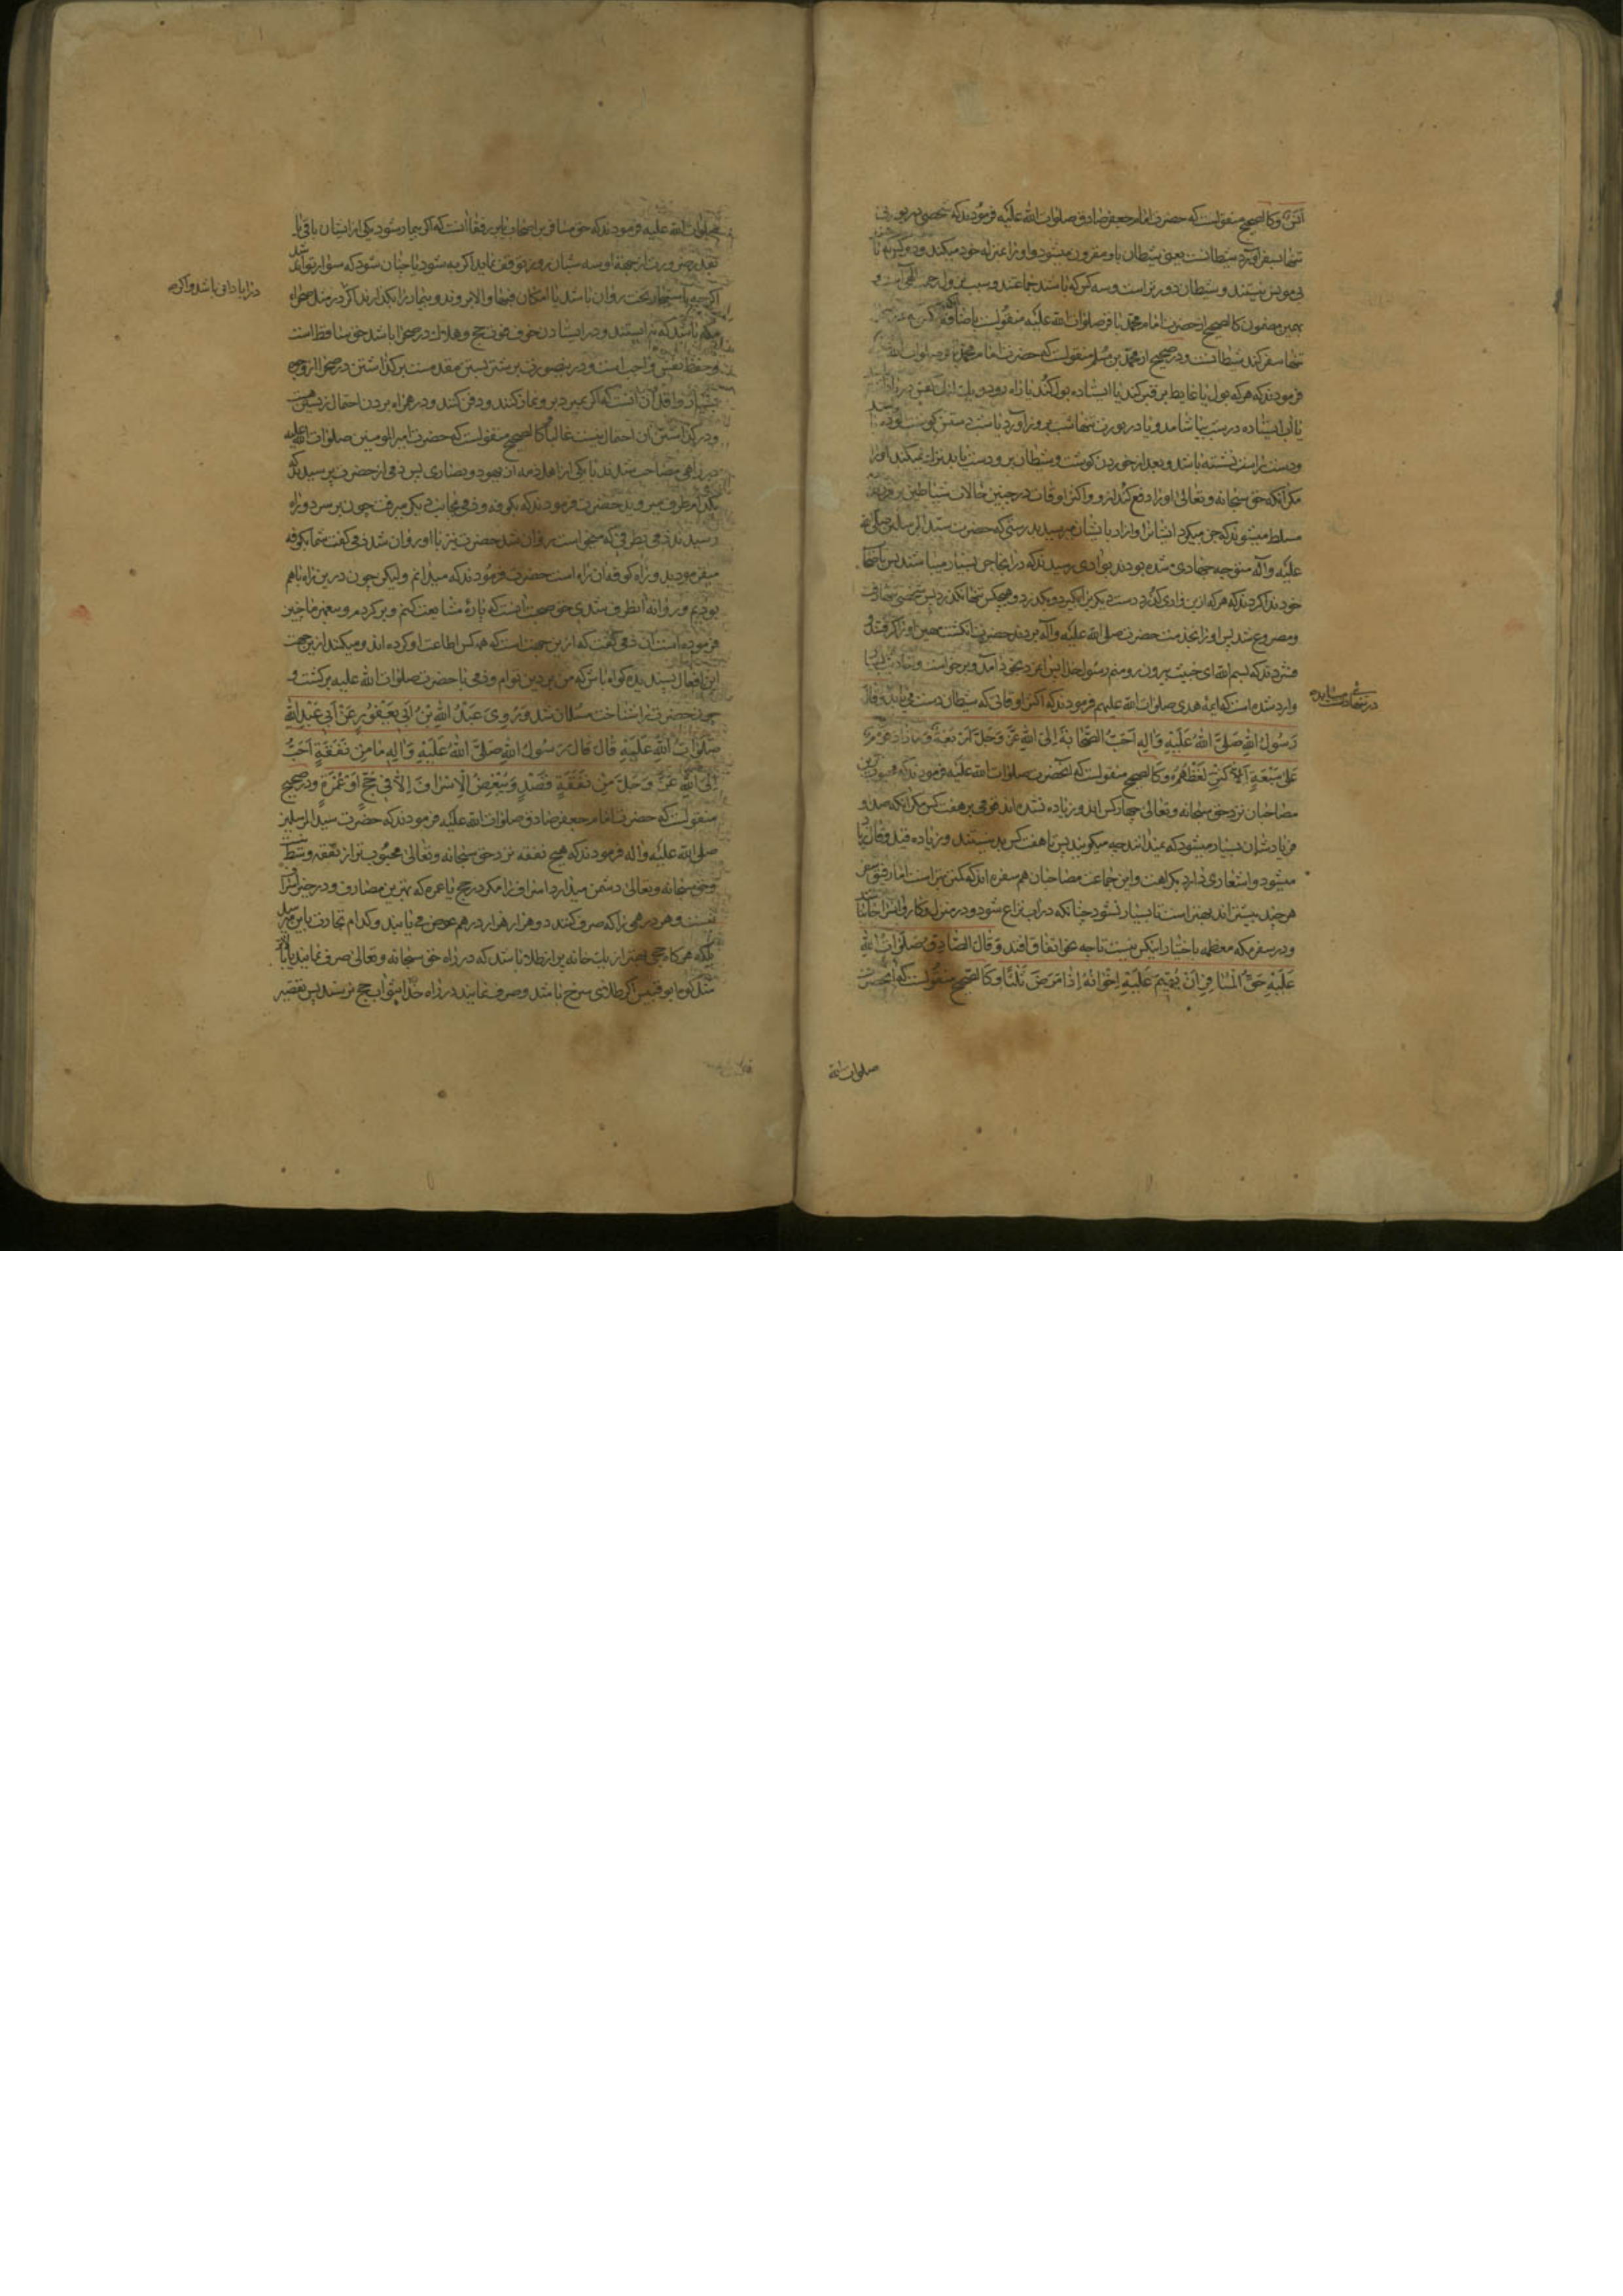 اکثر وکالصحیح منقولست که حضرت امام جعفر صادق صلوات الله علیه فرمودند که شخصی
تنها بسفر شیطانست یعنی شیطان با او مقرون میشود و او را بمنزله خود میکند و دو کس که با
بی مونس نیستند و شیطان دورتر است و سه کس که باشند جماعتند و سبب
بهمین مضمون کالصحیح از حضرت امام محمد باقر صلوات الله علیه منقولست
تنها سفر کند شیطانست و در صحیح از محمد بن مسلم منقولست که حضرت امام محمد باقر صلوات الله
فرمودند که هر که بول یا غایط بر قبر کند یا ایستاده بول کند یا راه رود در یک
یا آب ایستاده در شب بیاشامد و یا در
و دست را نشسته باشد و بعد از خوردن گوشت و شیطان برو دست یابد ترک نمیکند او را
مگر آنکه حق سبحانه و تعالی او را دفع کند ازو و اکثر اوقات در چنین حالات شیاطین برو
مسلط میشوند که جن میگرد ایشانرا و آزار بایشان میرسید بدرستی که حضرت سید المرسلین صلی الله
علیه وآله متوجه جهادی شده بودند بوادی رسیدند که در آنجا جن بسیار میباشند پس اصحاب
خود ندا کردند که هر که ازین وادی گذرد دست دیگری را بگیرد و بگذرد و هیچکس تنها نگذرد پس شخصی تنها رفت
و مصروع شد پس او را بخدمت حضرت صلی الله علیه وآله بردند حضرت انگشت مهین او را گرفتند و
فشردند که بسم الله ای خبیث بیرون رو منم رسول خدا پس آن مرد بخود آمد و برخواست و
وارد شده است که ایمه هدی صلوات الله علیهم فرمودند که اکثر اوقاتی که شیطان دست می یابد وقال
رَسُولُ اللهِ صَلَّی اللهُ عَلَیْهِ وَآلِهِ اَحَبُّ الصَّحَابَةِ اِلَی اللهِ عَزَّ وَجَلَّ اَرْبَعَةٌ وَمَا زَادَ قَوْمٌ
عَلی سَبْعَةٍ اِلاّ کَثُرَ لَغَطُهُمْ وکالصحیح منقولست که آنحضرت صلوات الله علیه فرمودند که محبوبترین
مصاحبان نزد حق سبحانه و تعالی چهار کس اند و زیاده نشده اند قومی بر هفت کس مگر آنکه صدا و
فریادشان بسیار میشود که نمیدانند چه میگویند پس تا هفت کس بد نیستند و زیاده
میشود و اشعاری دارد بکراهت و این جماعت مصاحبان هم سفره اند که کمتر بهتر است اما رفیق سفر
هرچند بیشتر اند بهتر است تا بسیار نشود چنانکه در آب نزاع شود و در منزل و کاروانسرا
و در سفر مکه معظمه باختیار اینکس نیست تا چه نحو اتفاق افتد وَقَالَ الصَّادِقُ صَلَوَاتُ اللهِ
عَلَیْهِ حَقُّ الْمُسَافِرِ اَنْ یُقِیمَ عَلَیْهِ اِخْوَانُهُ اِذَا مَرِضَ ثَلٰثًا وکالصحیح منقولست که آنحضرت
صلوات الله
صلوات الله علیه فرمودند که حق مسافر بر اصحاب یا بر رفقا آنست که اگر بیمار شود یکی از ایشان باقی با
او سه شبان روز توقف نماید اگر به شود یا چنان شود که سوار تواند شد
اگرچه تخت روان باشد با امکان فبها والا بروند و بیمار را بگذارند اگر در مثل صحرای
مکه باشد که نه ایستند و در ایستادن خوف فوت حج و هلاک در صحرا باشد حق ساقط است
و حفظ نفس واجب است و درینصورت بر شتر بستن مقدمست بر گذاشتن در صحرا از وجوه
بسیار و اقل آن آنست که اگر بمیرد برو نماز کنند و دفن کنند و در همراه بردن احتمال زیستن هست
و در گذاشتن آن احتمال نیست غالباً کالصحیح منقولست که حضرت امیر المومنین صلوات الله علیه
در راهی مصاحب شدند با یکی از اهل ذمه از یهود و نصاری پس ذمی از حضرت پرسید که
بکدام طرف میروید حضرت فرمودند که بکوفه و ذمی بجانب دیگر میرفت چون بر سر دو راه
رسیدند ذمی بطرفی که میخواست روان شد حضرت نیز با او روان شد ذمی گفت شما بکوفه
میفرمودید و راه کوفه آن راه است حضرت فرمودند که میدانم ولیکن چون درین راه با هم
بودیم و روانه آنطرف شدی حق صحبت آنست که پارهٔ مشایعت کنم و برگردم و پیغمبر ما چنین
فرموده است آن ذمی گفت که ازین جهتست که همه کس اطاعت او کرده اند و میکنند ازین جهت
این افعال پسندیده گواه باش که من بر دین توام و ذمی با حضرت صلوات الله علیه برگشت و
چون حضرت را شناخت مسلمان شد وَرَوی عَبْدُ اللهِ بْنُ اَبی یَعْفُورٍ عَنْ اَبی عَبْدِ اللهِ
صَلَوَاتُ اللهِ عَلَیْهِ قَالَ قَالَ رَسُولُ اللهِ صَلَّی اللهُ عَلَیْهِ وَآلِهِ مَا مِنْ نَفَقَةٍ اَحَبُّ
اِلَی اللهِ عَزَّ وَجَلَّ مِنْ نَفَقَةِ قَصْدٍ وَیُبْغِضُ الْاِسْرَافَ اِلاّ فی حَجٍّ اَوْ عُمْرَةٍ و در صحیح
منقولست که حضرت امام جعفر صادق صلوات الله علیه فرمودند که حضرت سید المرسلین
صلی الله علیه وآله فرمودند که هیچ نفقه نزد حق سبحانه وتعالی محبوب تر از نفقه وسط نیست
و حق سبحانه وتعالی دشمن میدارد اسراف را مگر در حج یا عمره که بهترین مصارف و در خیر اسراف
نیست و هر درهمی را که صرف کنند دو هزار هزار درهم عوض می یابند و کدام تجارت باین میرسد
بلکه هرگاه حجی بهتر از یک خانه پر از طلا باشد که در راه حق سبحانه وتعالی صرف نمایند
مثل کوه ابو قبیس اگر طلای سرخ باشد و صرف نمایند در راه خدا بثواب حج نرسند پس تقصیر